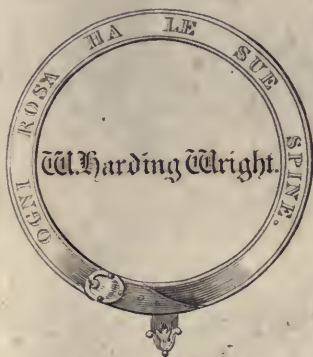 OGNI ROSA HA LE SUE SPINE.
W. Harding Wright.